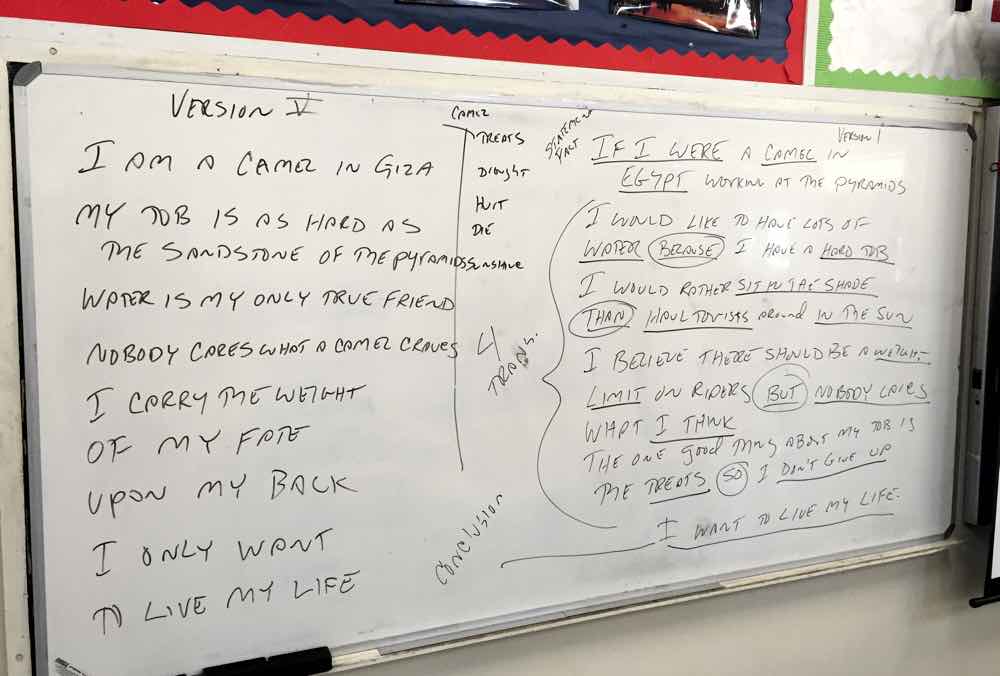 VERSION V
I AM A CAMEL IN GIZA
MY JOB IS AS HARD AS
THE SANDSTONE OF THE PYRAMIDS
WATER IS MY ONLY TRUE FRIEND
NOBODY CARES WHAT A CAMEL CRAVES
I CARRY THE WEIGHT
OF MY FATE
UPON MY BACK
I ONLY WANT
TO LIVE MY LIFE
CAMEL
TREATS
HURT
DIE
SUNSHINE
4
Conclusion
STATEMENT
FACT
VERSION 1
IF I WERE A CAMEL IN
EGYPT WORKING AT THE PYRAMIDS
I WOULD LIKE TO HAVE LOTS OF
WATER BECAUSE I HAVE A HARD JOB
I WOULD RATHER SIT IN THE SHADE
THAN HAUL TOURISTS around IN THE SUN
I BELIEVE THERE SHOULD BE A WEIGHT
LIMIT ON RIDERS BUT NOBODY CARES
WHAT I THINK
THE ONE good THING ABOUT MY JOB IS
THE TREATS SO I DON'T GIVE UP
I WANT TO LIVE MY LIFE.